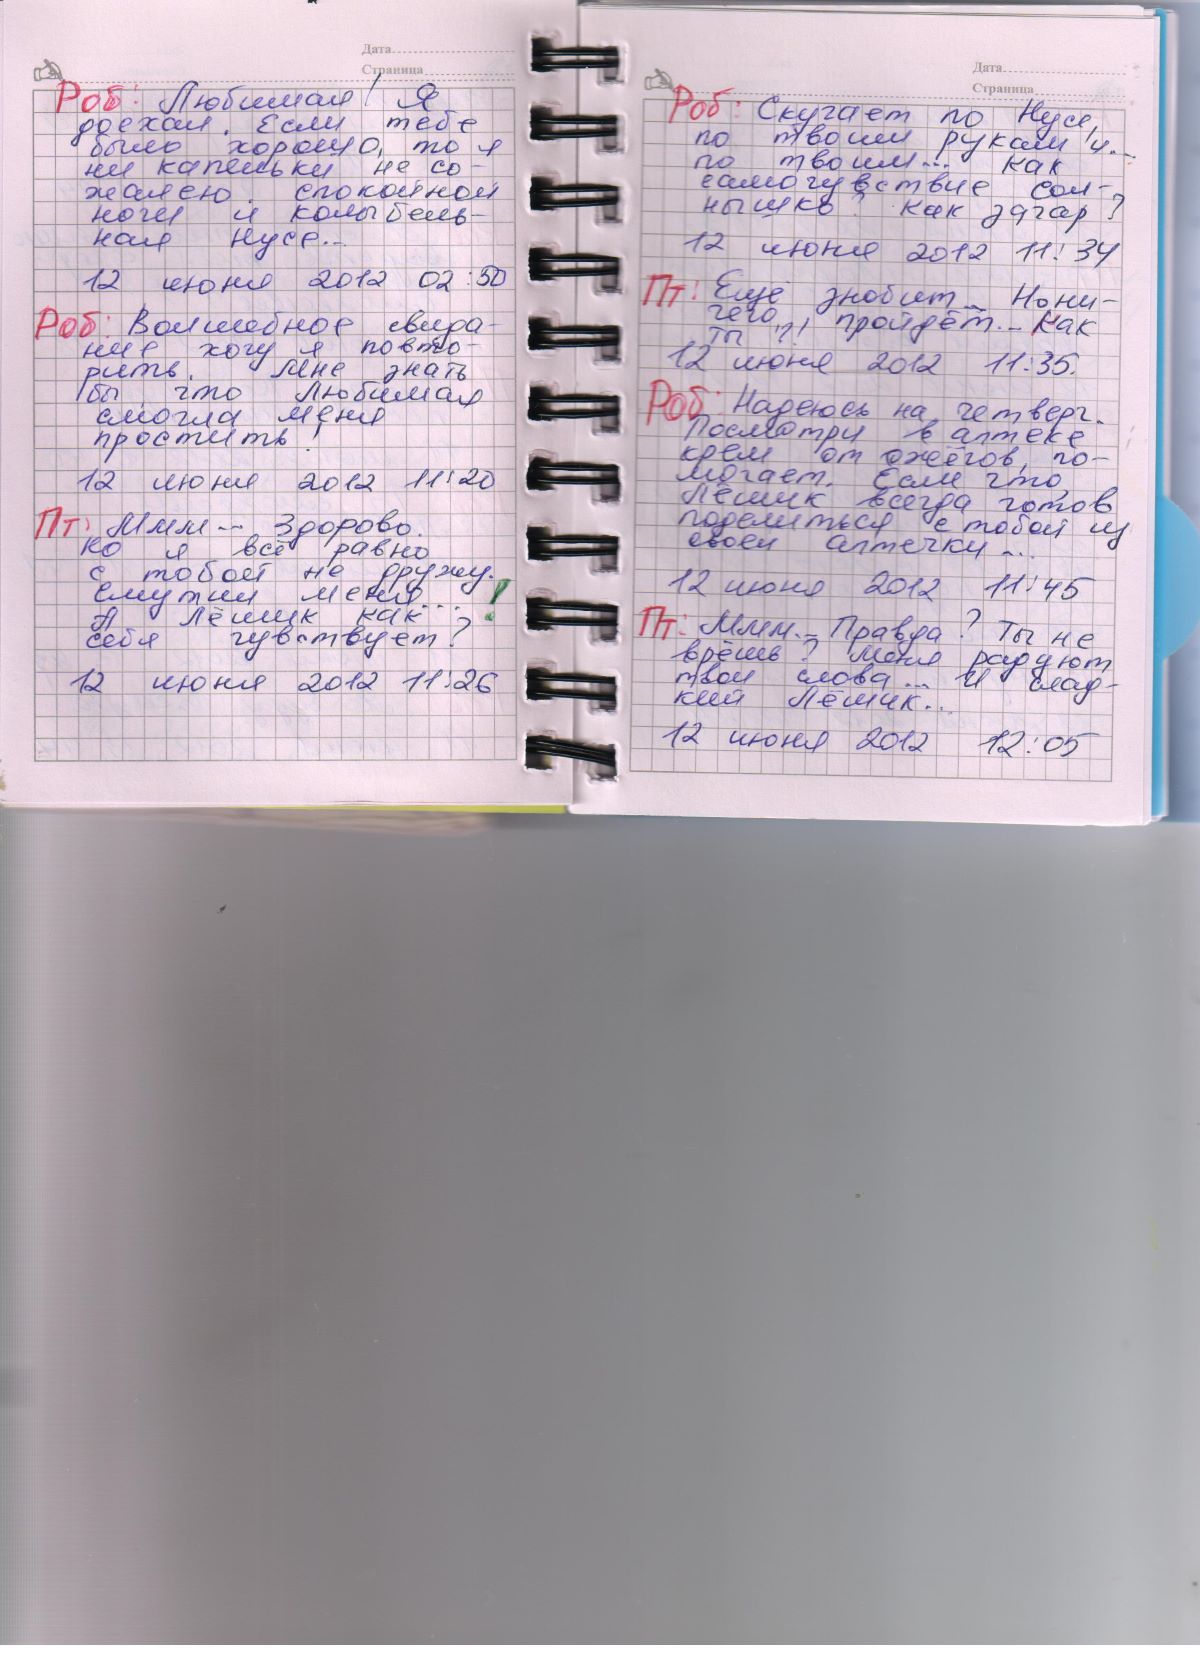 Дата
Страница
Роб: Любимая! Я
доехал. Если тебе
было хорошо, то я
ни капельки не со-
жалею. Спокойной
ночи и колыбель-
ная Нусе...
12 июня 2012 02:50
Роб: Волшебное свида-
ние хочу я повто-
рить. Мне знать
бы, что Любимая
смогла меня
простить!
12 июня 2012 11:20
Пт: Ммм... Здорово.
Но я всё равно
с тобой не дружу.
Смутил меня...!
А Лёшик как
себя чувствует?
12 июня 2012 11:26
Дата
Страница
Роб: Скучает по Нусе,
по твоим рукам и...
по твоим... Как
самочувствие сол-
нышко? Как загар?
12 июня 2012 11:34
Пт: Ещё знобит... Но ни-
чего, пройдёт... Как
ты ?!
12 июня 2012 11:35.
Роб: Надеюсь на четверг.
Посмотри в аптеке
крем от ожёгов, по-
могает. Если что,
Лёшик всегда готов
поделиться с тобой из
своей аптечки...
12 июня 2012 11:45
Пт: Ммм... Правда? Ты не
врёшь? Меня радуют
твои слова... И слад-
кий Лёшик...
12 июня 2012 12:05